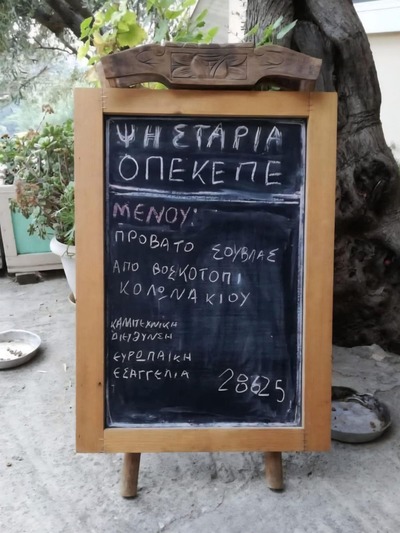 ΨΗΣΤΑΡΙΑ
ΟΠΕΚΕΠΕ
ΜΕΝΟΥ:
ΠΡΟΒΑΤΟ ΣΟΥΒΛΑΣ
ΑΠΟ ΒΟΣΚΟΤΟΠΙ
ΚΟΛΩΝΑΚΙΟΥ
ΚΑΜΠΕΧΝΙΚΗ
ΔΙΕΥΘΥΝΣΗ
ΕΥΡΩΠΑΙΚΗ
ΕΣΑΓΓΕΛΙΑ